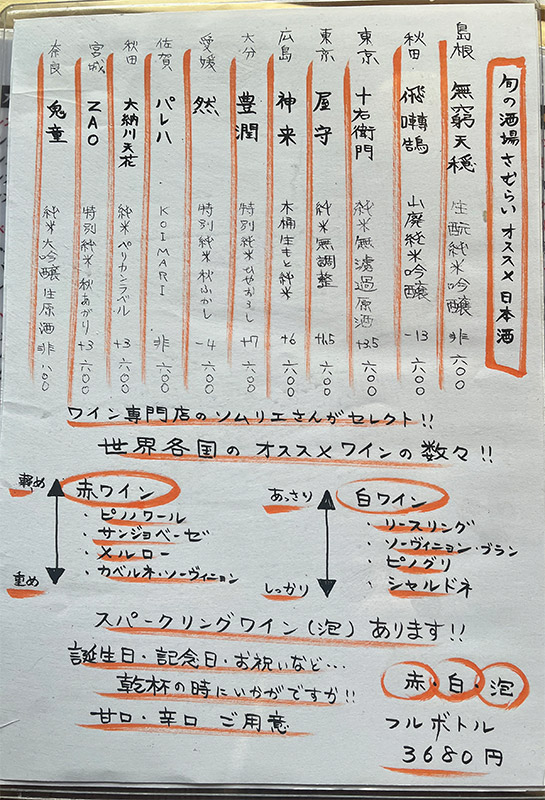 旬の酒場 さむらい オススメ 日本酒
島根 無窮天穏 生酛純米吟醸 非 六〇〇
秋田 飛囀鵠 山廃純米吟醸 -13 六〇〇
東京 十右衛門 純米無濾過原酒 +3.5 六〇〇
東京 屋守 純米無調整 +1.5 六〇〇
広島 神来 木桶生もと純米 +6 六〇〇
大分 豊潤 特別純米ひやおろし +7 六〇〇
愛媛 然 特別純米秋ふかし -4 六〇〇
佐賀 パレハ KOIMARI 非 六〇〇
秋田 大納川天花 純米ペリカンラベル +3 六〇〇
宮城 ZAO 特別純米 秋あがり +3 六〇〇
奈良 鬼童 純米大吟醸生原酒 非 八〇〇
ワイン専門店のソムリエさんがセレクト!!
世界各国のオススメワインの数々!!
軽め
赤ワイン
・ピノノワール
・サンジョベーゼ
・メルロー
・カベルネ・ソーヴィニョン
重め
あっさり
白ワイン
・リースリング
・ソーヴィニョン・ブラン
・ピノグリ
・シャルドネ
しっかり
スパークリングワイン(泡)あります!!
誕生日・記念日・お祝いなど…
乾杯の時にいかがですか!!
甘口・辛口 ご用意
赤・白・泡
フルボトル
3680円